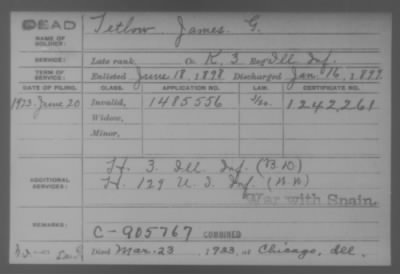 DEAD
NAME OF SOLDIER: Tetlow, James G.
SERVICE: Late rank, Co. K, 3 Reg Ill. Inf.
TERM OF SERVICE: Enlisted June 18, 1898. Discharged Jan. 16, 1899.
DATE OF FILING. CLASS. APPLICATION NO. LAW. CERTIFICATE NO.
1923. June 20 Invalid, 1485556 1242261
Widow,
Minor,
ADDITIONAL SERVICES:
H. 3. Ill. Inf. (B.D)
H. 129 U.S. Inf.
War with Spain.
REMARKS:
C-905767 COMBINED
Died Mar. 23, 1933, at Chicago, Ill.